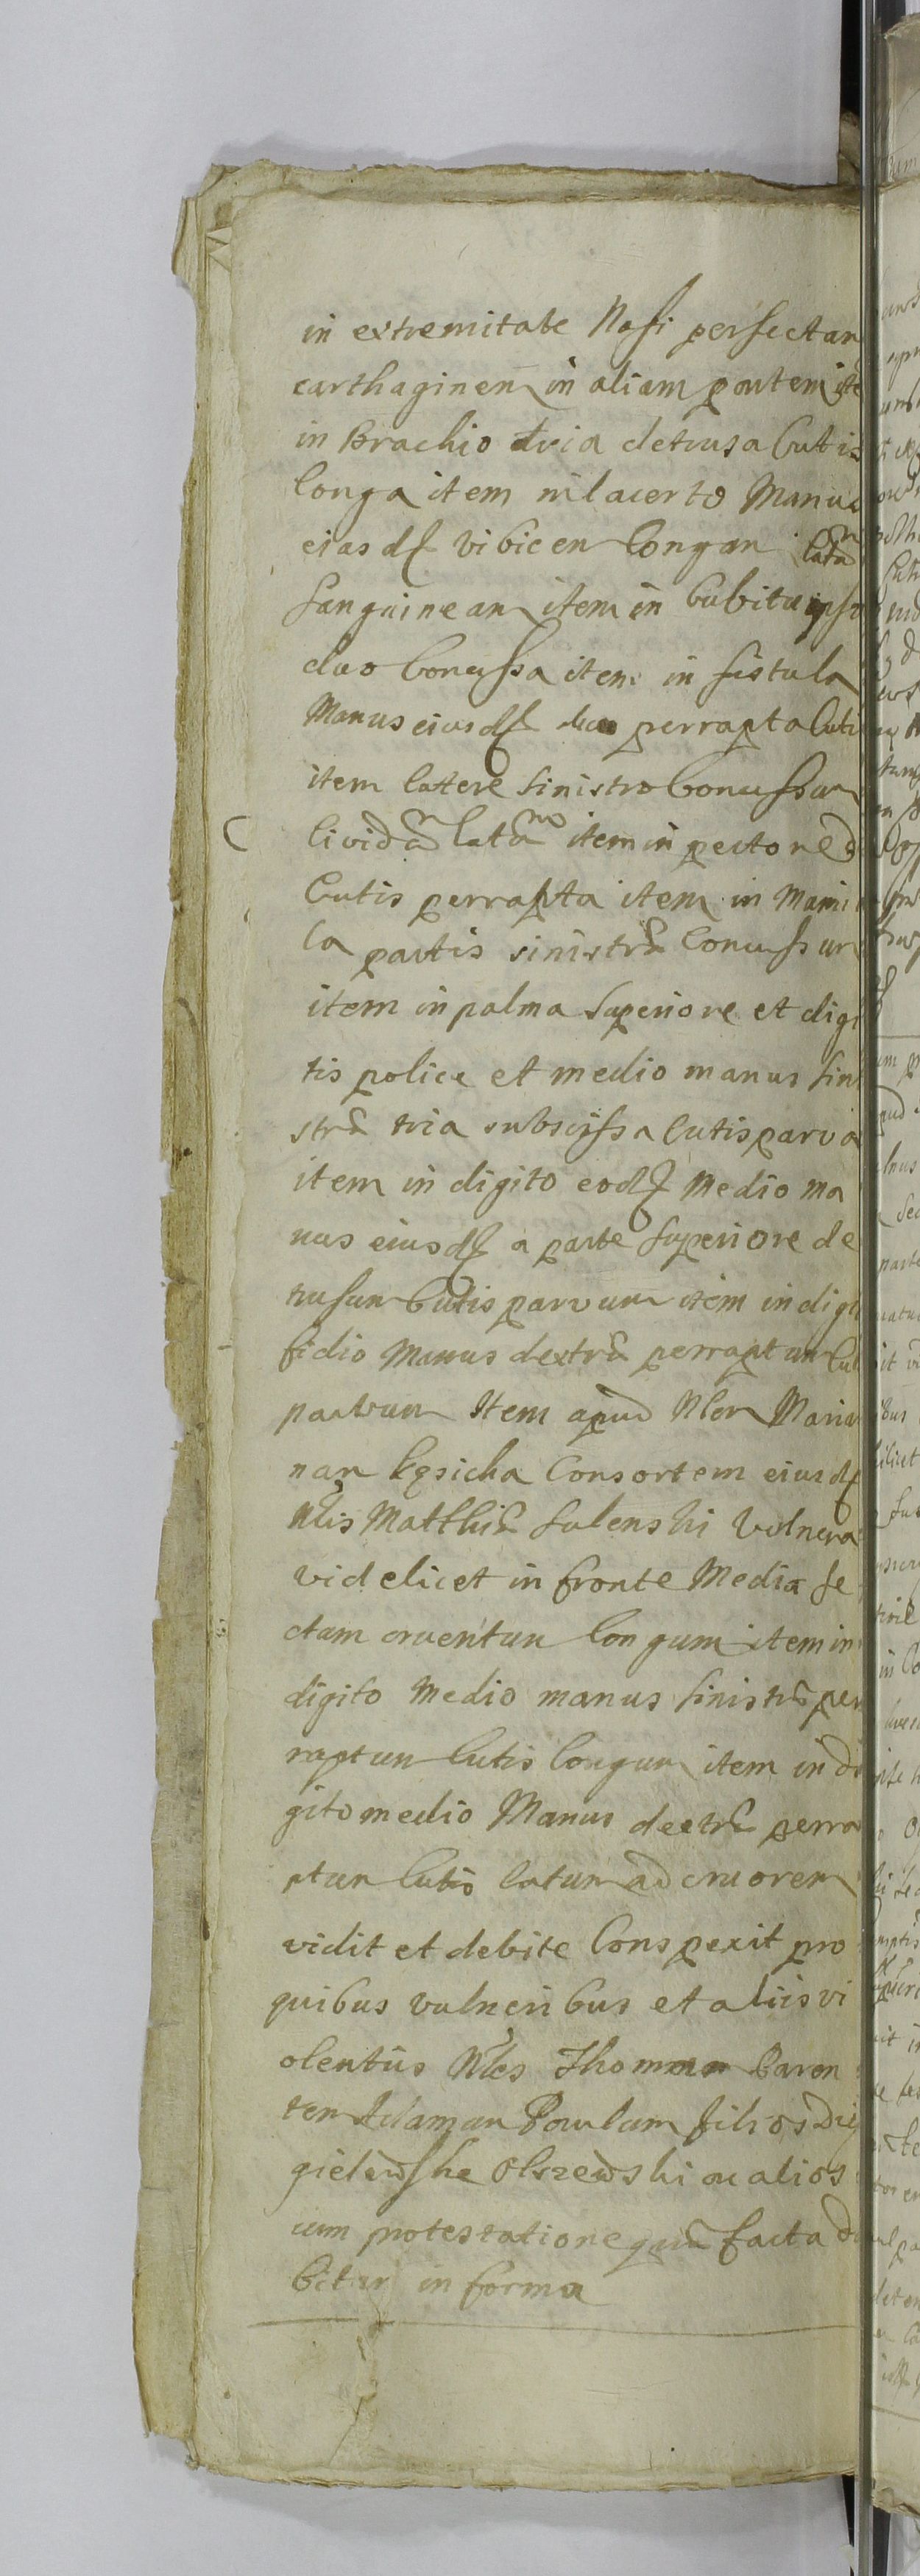 in extremitate Nasi persectam
carthaginem in aliam partem ite
in Brachio tria detrusa Cutis
longa item in lacerto Manus
eiusd vibicem longam latam
sanguineam item in Cubitu ipso
duo Concussa item in fistula
Manus eiusd perrapta Cuti
item latere sinistro Concussam
lividam latam item in pectore
Cutis perrapta item in Mami
la partis sinistræ Concussum
item in palma superiore et digi
tis police et medio manus sini
stræ tria subscissa Cutis parva
item in digito eod Medio ma
nus eiusd a parte superiore de
trusum Cutis parvum item in digi
fidio Manus dextræ perraptum Cut
parvum Item apud Nlem Maria
nam Kęsicka Consortem eiusd
Nlis Matthiæ Sulenski vulnera
videlicet in fronte Media se
ctam cruentum longum item in
digito Medio manus sinistræ per
raptum Cutis longum item in di
gito medio Manus dextræ perra
ptum Cutis latum ad cruorem
vidit et debite Conspexit pro
quibus vulneribus et aliis vi
olentiis Nles Thomam Paren
tem Adamum Paulum filios
Olszewski ac alios
cum protestatione quæ facta
bitur in forma